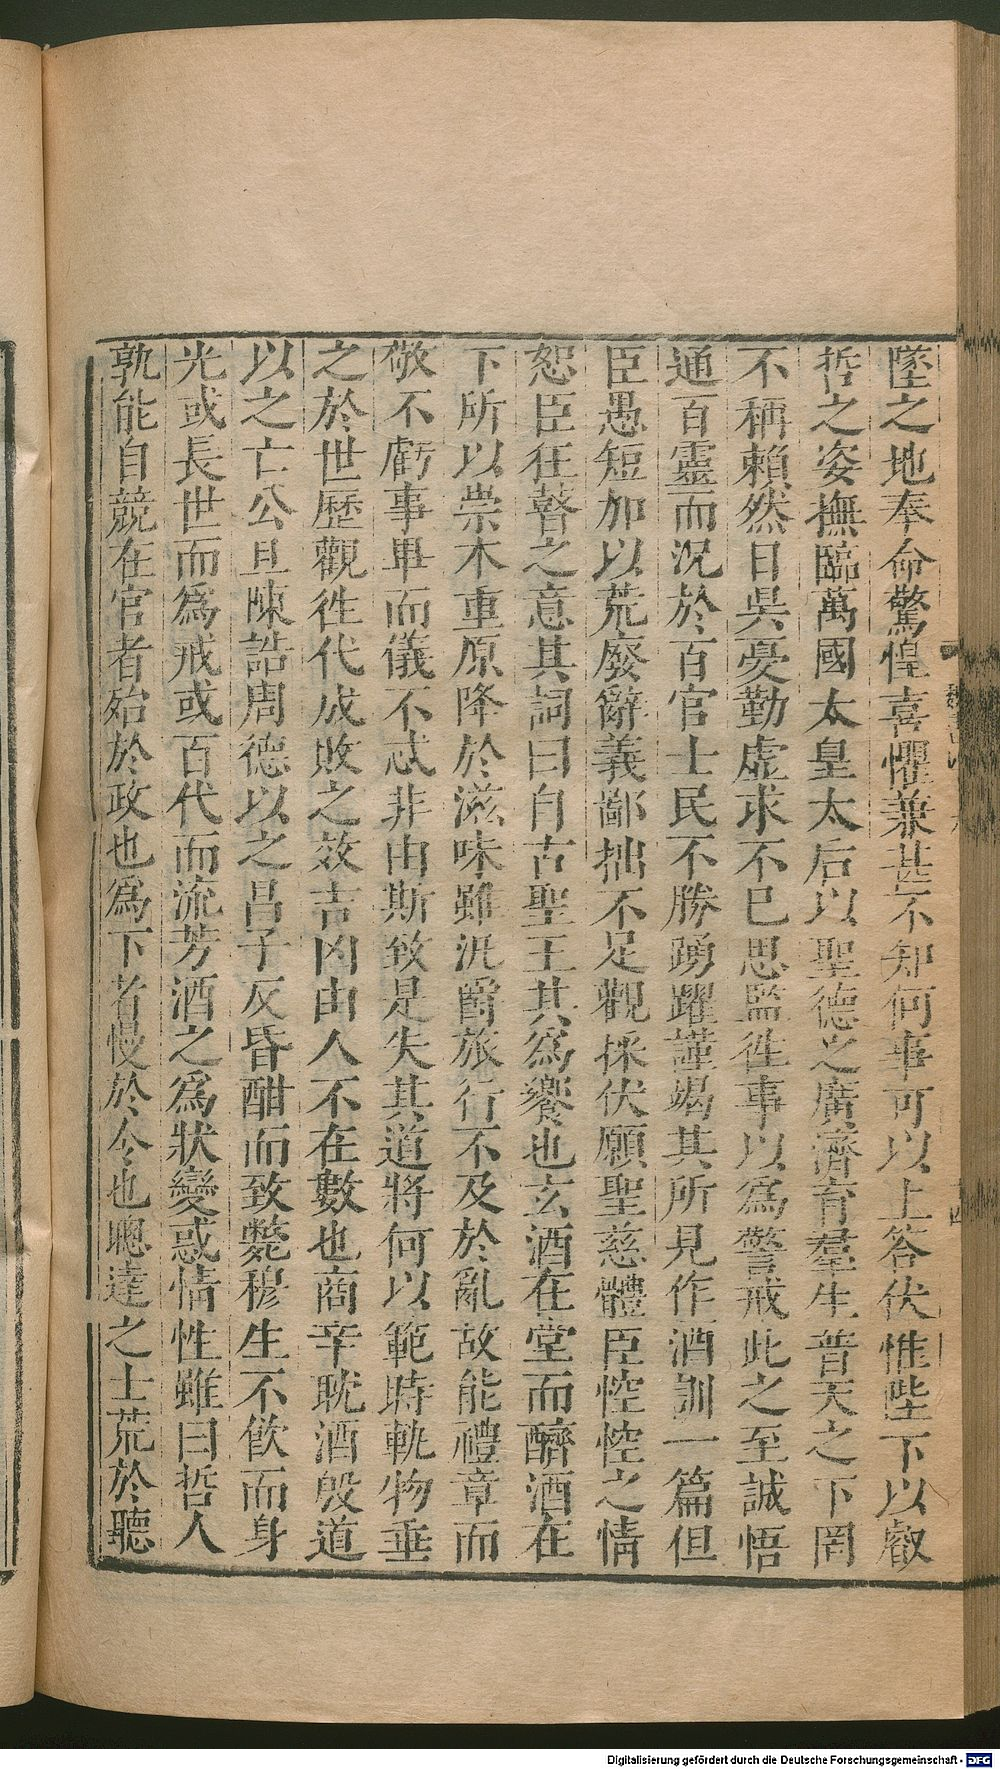 墜之地奉命驚惶喜懼兼甚不知何事可以上答伏惟陛下以叡
哲之姿撫臨萬國太皇太后以聖德之廣濟育羣生普天之下罔
不稱賴然日昃憂勤虛求不已思監徃事以為警戒此之至誠悟
通百靈而況於百官士民不勝踴躍謹竭其所見作酒訓一篇但
臣愚短加以荒廢辭義鄙拙不足觀採伏願聖慈體臣悾悾之情
恕臣狂瞽之意其詞曰自古聖王其為饗也玄酒在堂而醴酒在
下所以崇木重原降於滋味雖汎爵旅行不及於亂故能禮章而
敬不虧事畢而儀不忒非由斯致是失其道將何以範時軌物垂
之於世歷觀徃代成敗之效吉凶由人不在數也商辛耽酒殷道
以之亡公旦陳誥周德以之昌子反昏酣而致斃穆生不飲而身
光或長世而為戒或百代而流芳酒之為狀變惑情性雖曰哲人
孰能自競在官者殆於政也為下者慢於令也聰達之士荒於聽
Digitalisierung gefördert durch die Deutsche Forschungsgemeinschaft - DFG